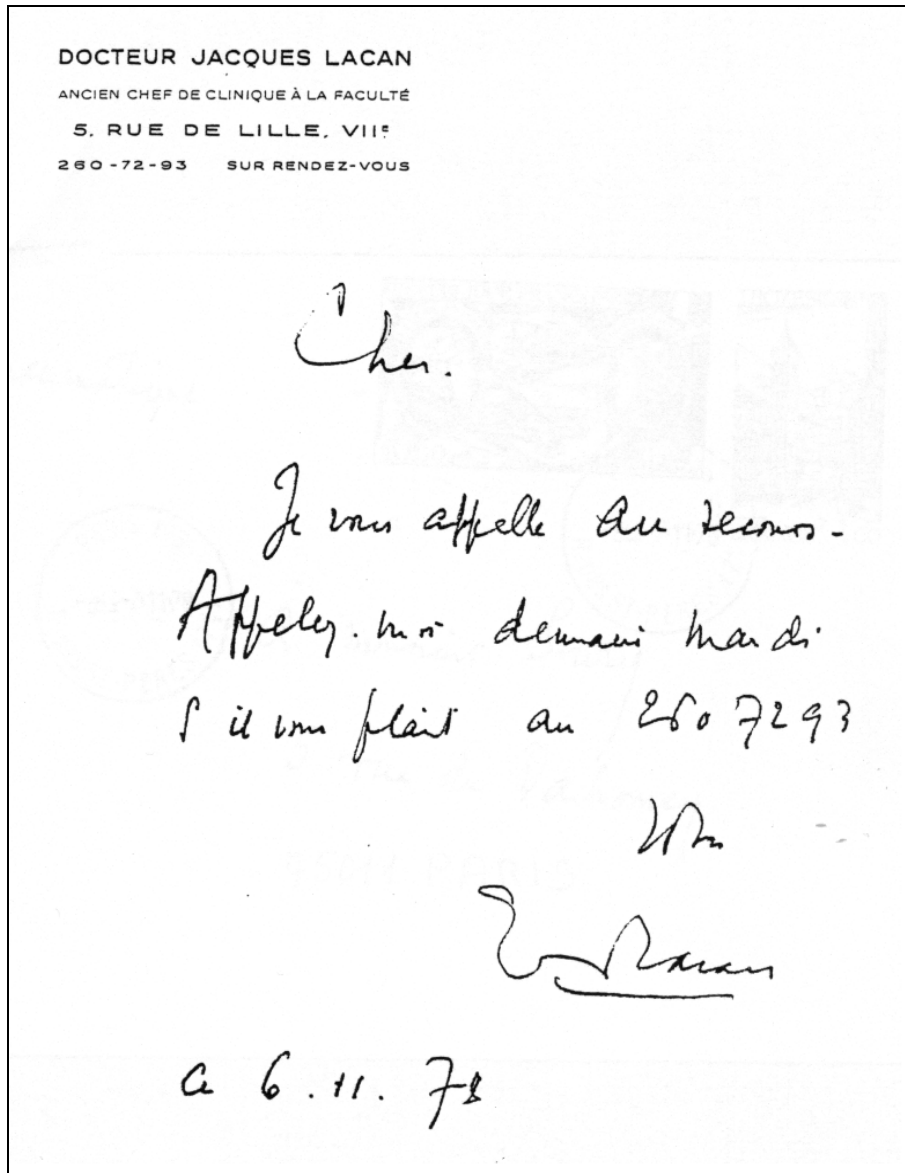 DOCTEUR JACQUES LACAN
ANCIEN CHEF DE CLINIQUE À LA FACULTÉ
5, RUE DE LILLE, VIIe
260-72-93 SUR RENDEZ-VOUS
Cher.
Je vous appelle au secours.
Appelez-moi demain mardi
s'il vous plaît au 260 7293
Lacan
ce 6.11.78